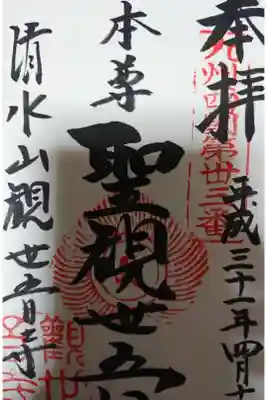 奉拝
九州西国第卅三番
平成三十一年四月十
本尊
聖観世音
清水山観世音寺